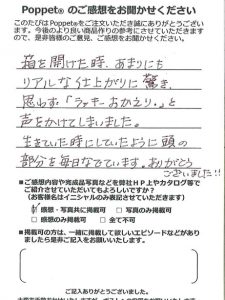 Poppet® のご感想をお聞かせください
このたびはPoppet®をご注文いただき誠にありがとうござい
ます。今後のより良い商品作りの参考にさせていただきます
ので、是非皆様のご意見、ご感想をお聞かせください。
箱を開けた時、あまりにも
リアルな仕上がりに驚き、
思わず「ラッキーおかえり。」と
声をかけてしまいました。
生きていた時にしていたように頭の
部分を毎日なでています。ありがとう
ございました!!
■ご感想内容や完成品写真などを弊社HP上やカタログ等で
ご紹介させていただいてもよろしいですか？
(お客様名はイニシャルのみ表記させていただきます)
感想・写真共に掲載可 □ 写真のみ掲載可
□ 感想のみ掲載可 □ 全て不可
■掲載可の方は、一緒に掲載して欲しいエピソードなどがあり
ましたら是非ご記入をお願いいたします。
ご記入ありがとうございました。